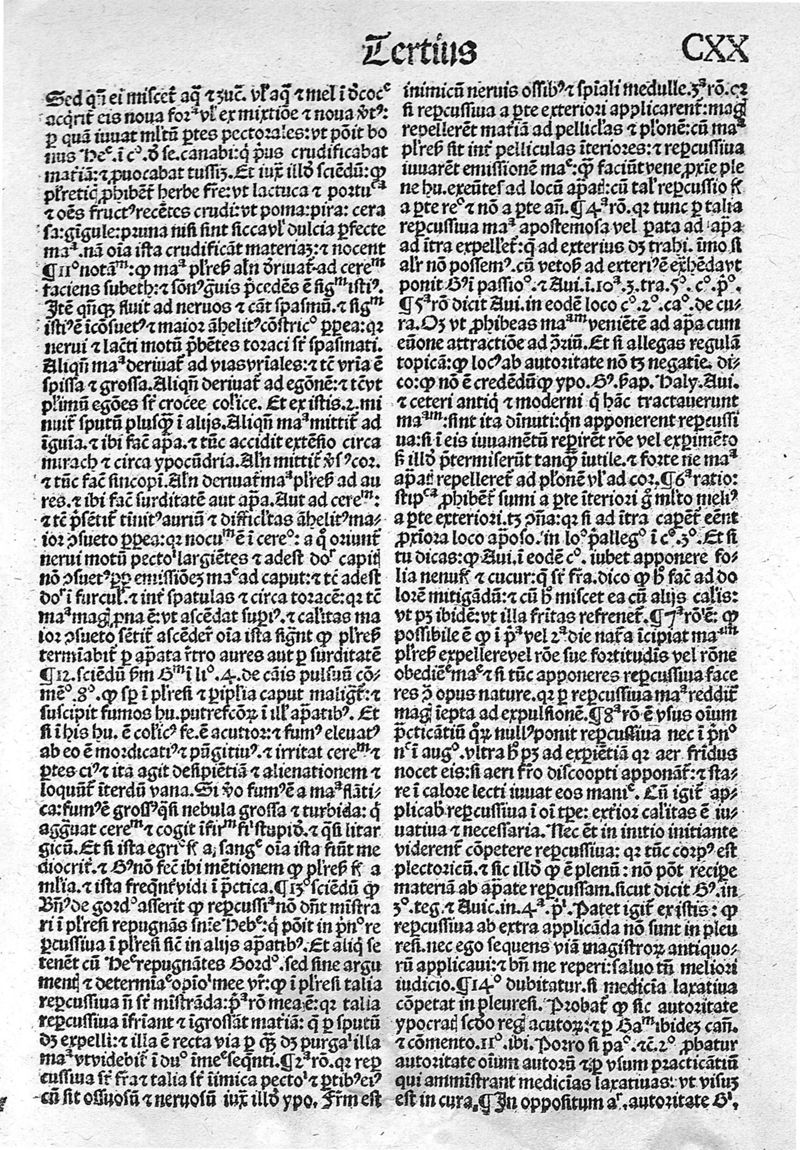 Tertius
CXX
Sed qñ ei miscet᷑ aq̃ ⁊ ʒuc̃. vl̓ aq̃ ⁊ mel ĩ
acq̇rit᷑ eis noua for̃ᵃ vl̓ ex mixtiõe ⁊ noua
ꝑ quã iuuat ml̓tũ ꝑtes pectorales: vt põit bo
canabi: crudificabat
mat̃iã: ⁊ ꝓuocabat tussiʒ. Et iux̃ illđ sciẽdũ: ꝙ
pl̓retiq̃ ꝓhibẽt᷑ herbe fr̃e: vt lactuca ⁊ portuᶜᵃ
⁊ oẽs fructꝰ recẽtes crudi: vt poma: pira: cera
sa: gigule: pruna nisi sint siccaṽl dulcia perfecte
maᵃ. nã oĩa ista crudificãt materiaʒ: ⁊ nocent
¶ 11ᵒ notãᵐ: ꝙ maᵃ pl̓resis aln̄ deriuat᷑ ad cereᵐ
faciens subeth: ⁊
Itẽ qñqʒ fluit ad neruos ⁊ cãt spasmũ. ⁊ sigᵐ
istiꝰ ẽ ĩcõsuetꝰ ⁊ maior ãhelitꝰ cõstricᵒ ppea: qꝛ
nerui ⁊ lac̃ti motũ p̃bẽtes toraci sr̃ spasmati.
Aliqñ maᵃ deriuat᷑ ad vias vriales: ⁊ tẽ vria ẽ
spissa ⁊ grossa. Aliqñ deriuat᷑ ad egõnẽ: ⁊
pl̓imũ egões sr̃ crocee colꝰice. Et ex istis .2. mi
nuit᷑ sputũ plusꝙ ĩ alijs. Aliqñ maᵃ mittit᷑ ad
ĩguĩa. ⁊ ibi fac̃ ap̃a. ⁊ tũc accidit extẽsio circa
mirach ⁊ circa ypocũdria. Aln̄ mittit᷑ cor.
⁊ tũc fac̃ sincopĩ. Aln̄ deriuat᷑ maᵃ pl̓resis ad au
res. ⁊ ibi fac̃ surditatẽ aut ap̃a. Aut ad cereᵐ:
⁊ tẽ p̃sẽtit᷑ tinitꝰ auriũ ⁊ difficl̓tas ãhelitꝰ ma-
ior ɔsueto ppea: qꝛ nocuᵐ ẽ ĩ cereᵒ: a q̊ oriunt᷑
nerui motũ pectoⁱ largiẽtes ⁊ adest doⁱ capiꝰ
nõ ɔsuetꝰ ꝓpter emissiõeʒ maᵉ ad caput: ⁊ tẽ adest
doⁱ ĩ furculꝰ. ⁊ int᷑ spatulas ⁊ circa toracẽ: qꝛ tẽ
maᵃ magᵃ pᵃna ẽ: vt ascẽdat supiꝰ. ⁊ calitas ma
ior ɔsueto sẽtit᷑ ascẽder̃ oĩa ista signt̃ ꝙ pl̓resis
termĩabit᷑ ꝑ ap̃ata r̃tro aures aut ꝑ surditatẽ
¶ 12. sciẽdũ ẜm Gᵐ ĩ liᵒ .4. de cãis pulsuũ cõ-
mẽᵒ .8ᵒ. ꝙ sp̄ ĩ pl̓resi ⁊ pipl̓ia caput maligt᷑: ⁊
suscipit fumos hu. putrefcõꝝ ĩ ill̓ ap̃atibꝰ. Et
si ĩ his hu. ẽ colꝰicꝰ fe. ẽ acutior: ⁊ fumꝰ eleuatꝰ
ab eo ẽ mordicatiꝰ ⁊ pũgitiuꝰ. ⁊ irritat cereᵐ ⁊
ꝑtes ciꝰ ⁊ ita agit desipiẽtiã ⁊ alienationem ⁊
loquũt᷑ ĩterdũ vana. Si ṽo fumꝰ ẽ a maᵃ flãti-
ca: fumꝰ ẽ grossꝰ q̃si nebula grossa ⁊ turbida: q̃
aggᵃuat cereᵐ ⁊ cogit ĩfirᵐ fiⁱ stupiđ. ⁊ q̃si litar
gicũ. Et si ista egriᵉ a sangᵉ oĩa ista fiũt me
diocrit᷑. ⁊ Gꝰ nõ fec̃ ibi mẽtionem ꝙ pl̓resis a
ml̓ia. ⁊ ista freq̃nt᷑ vidi ĩ p̃ctica. ¶ 13ᵒ sciẽdũ ꝙ
Bñꝰ de gordᵒ asserit ꝙ repcussiᵃ nõ dñt mĩstra
ri ĩ pl̓resi repugnãs snĩe Hebᵉ: q̃ põit in p̃nᵒ re
percussiua ĩ pl̓resi sic̃ in alijs ap̃atibꝰ. Et aliq̃ se
tenẽt cũ Heᵉ repugnãtes Gordᵒ. sed sine argu
mentis ⁊ determĩaᵉ opioⁱ mee vr̃: ꝙ ĩ pl̓resi talia
repercussiua ñ sr̃ mĩstrãda: p̃ᵃ rõ mea ẽ: qꝛ talia
repercussiua ĩfriant ⁊ ĩgrossãt mat̃iã: q̃ ꝑ sputũ
dʒ expelli: ⁊ illa ẽ recta via ꝑ qᵃʒ dʒ purgaⁱ illa
maᵃ vt videbit᷑ ĩ duᵒ imᵉ seq̃nti. ¶ 2ᵃ rõ. qꝛ rep
cussiua sr̃ fr̃a ⁊ talia sr̃ ĩimica pectoⁱ ⁊ ꝑtibꝰ eiꝰ
cũ sit ossuosũ ⁊ neruosũ iux̃ illđ ypo. Fr̃m est
inimicũ neruis ossibꝰ ⁊ spĩali medulle. 3ᵃ rõ. qꝛ
si repcussiua a ꝑte exteriori applicarent᷑: magꝭ
repellerẽt mat̃iã ad pellicl̓as ⁊ pl̓onẽ: cũ maᵃ
pl̓resis sit int᷑ pelliculas ĩteriores: ⁊ repcussiua
iuuarẽt emissionẽ maᵉ: ꝙ faciũt vene ꝓxĩe ple
ne hu. exeũtes ad locũ ap̃atis: cũ talꝭ repcussio sit
a ꝑte reᵒ ⁊ nõ a ꝑte añ. ¶ 4ᵃ rõ. qꝛ tunc ꝑ talia
repercussiua maᵃ apostemosa vel pata ad ap̃a
ad ĩtra expellet᷑: q̃ ad exterius dʒ trahi. ĩmo si
alꝛ̃ nõ possemꝰ. cũ vetosis ad exteriꝰ ẽ exhẽdavt
ponit Gꝰ ĩ passioᵒ. ⁊ Aui. ĩ. 10ᵃ .3. tra. 5ᵒ. cᵒ. p̃ᵒ.
¶ 5ᵃ rõ dicit Aui. in eodẽ loco cᵒ. 2ᵒ. caᵒ. de cu-
ra. Oʒ vt ꝓhibeas maᵃᵐ veniẽtẽ ad ap̃a cum
eũone attractiõe ad ɔ̃riũ. Et si allegas regulã
topicã: ꝙ locꝰ ab autoritate nõ tʒ negatiẽ. di-
co: ꝙ nõ ẽ credẽdũ ꝙ ypo. Gꝰ. Haly. Aui.
⁊ ceteri antiq̃ ⁊ moderni q̃ hãc tractauerunt
maᵃᵐ: sint ita dĩnuti: qñ apponerent repcussi
ua: si ĩ eis iuuamẽtũ repirẽt rõe vel expimẽto
ꝙ illđ p̃termiserũt tanqᵃʒ ĩutile. ⁊ forte ne maᵃ
ap̃atis repelleret᷑ ad pl̓onẽ vl̓ ad cor. ¶ 6ᵃ ratio:
ꝓhibẽt᷑ sumi a ꝑte ĩteriori g̊ ml̓to meliꝰ
a ꝑte exteriori. tʒ ɔ̃ña: qꝛ si ad ĩtra caperẽt᷑ eẽnt
ꝓxiora loco ap̃oso. in loᵒ p̃allegᵒ ĩ cᵒ. 3ᵒ. Et si
tu dicas: ꝙ Aui. ĩ eodẽ cᵒ. iubet apponere fo-
lia nenuf. ⁊ cucur: q̃ sr̃ fr̃a. dico ꝙ fac̃ ad do
lorẽ mitigãdũ: ⁊ cũ miscet ea cũ alijs calis:
vt pʒ ibidẽ: vt illa fr̃itas refrenet᷑. ¶ 7ᵃ rõ ẽ: ꝙ
possibile ẽ ꝙ ĩ p̃ᵃ vel 2ᵃ die nat̃a ĩcipiat maᵃᵐ
pl̓resis expellere vel rõe sue fortitudis vel rõne
obediẽᵉ maᵉ ⁊ si tũc apponeres repcussiua face
res ɔ̃ opus nature. qꝛ ꝑ repcussiua maᵃ reddit᷑
magꝭ ĩepta ad expulsionẽ. ¶ 8ᵃ rõ ẽ vsus oĩum
p̃cticãtiũ nullꝰ ponit repcussiua nec ĩ p̃nᵒ
nᶜ ĩ augᵒ. vltra pʒ ad expiẽtiã qꝛ aer fridus
nocet eis: si aeri fr̃o discoopti apponãt᷑: ⁊ sta-
re ĩ calore lecti iuuat eos maniᵉ. Cũ igit᷑ ap-
plicabꝭ repcussiua ĩ oĩ tp̃e: extr̃ior calitas ẽ iu-
uatiua ⁊ necessaria. Nec ẽt in initio initiante
viderent᷑ cõpetere repcussiua: qꝛ tũc corpꝰ est
plectoricũ. ⁊ sic illđ ꝙ ẽ plenũ: nõ põt recipe
materiã ab ap̃ate repcussam. sicut dicit Gꝰ. in
3ᵒ. teg. ⁊ Auic. in. 4ᵃ. p̃ⁱ. Patet igit᷑ ex istis: ꝙ
repercussiua ab extra applicãda nõ sunt in pleu
resi. nec ego sequens viã magistroꝝ antiquo-
rũ applicaui: ⁊ bñ me reperi: saluo tñ meliori
iudicio. ¶ 14ᵒ dubitatur. si medicĩa laxatiua
cõpetat in pleuresi. Probat᷑ ꝙ sic autoritate
ypocratis scđo regis acutoꝝ: ⁊ ꝑ Gaᵐ. ibideʒ cañ.
⁊ cõmento. 11ᵒ. ibi. Porro si paᵒ. ⁊c̃. 2ᵒ ꝓbatur
autoritate oĩum autorũ ⁊ ꝑ vsum practicãtiũ
qui aminstrant medicĩas laxatiuas: vt visuʒ
est in cura. ¶ In oppositum aʳ. autoritate Gⁱ.